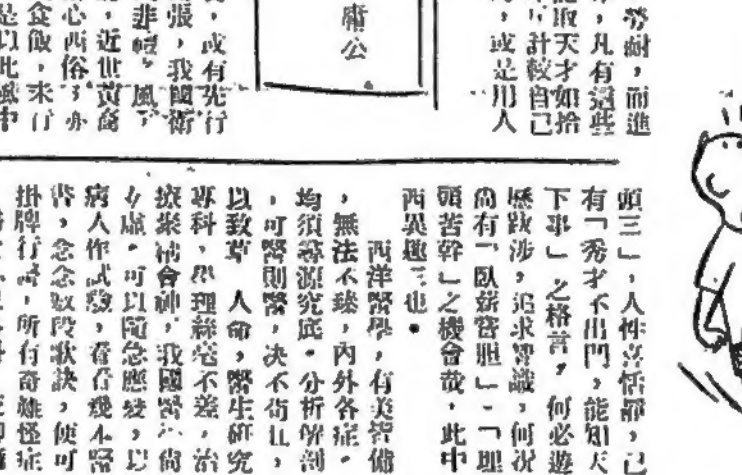 勞耐，而進
，凡有這些
取天才如拾
計較自己
，或是用人
庸公
，或有先行
張，我國衛
非禮。風
，近世黃
心西俗，亦
食飯，未行
是以此風中
頭三」，人性喜恬靜，已
有「秀才不出門，能知天
下事」之格言，何必遊
歷跋涉，追求智識，何況
尚有「臥薪嘗胆」-「埋
頭苦幹」之機會哉，此中
西異趣三也。
西洋醫學，有美皆備
，無法不臻，內外各症，
均須尋源究底。分析解剖
，可醫則醫，决不
以致草 人命，醫生研究
專科，學理絲毫不差，治
療聚精會神，我國醫 尚
虛。可以隨意應變，以
病人作試驗，看看幾本醫
書，念念數段歌訣，便可
掛牌行 ，所有奇難怪症